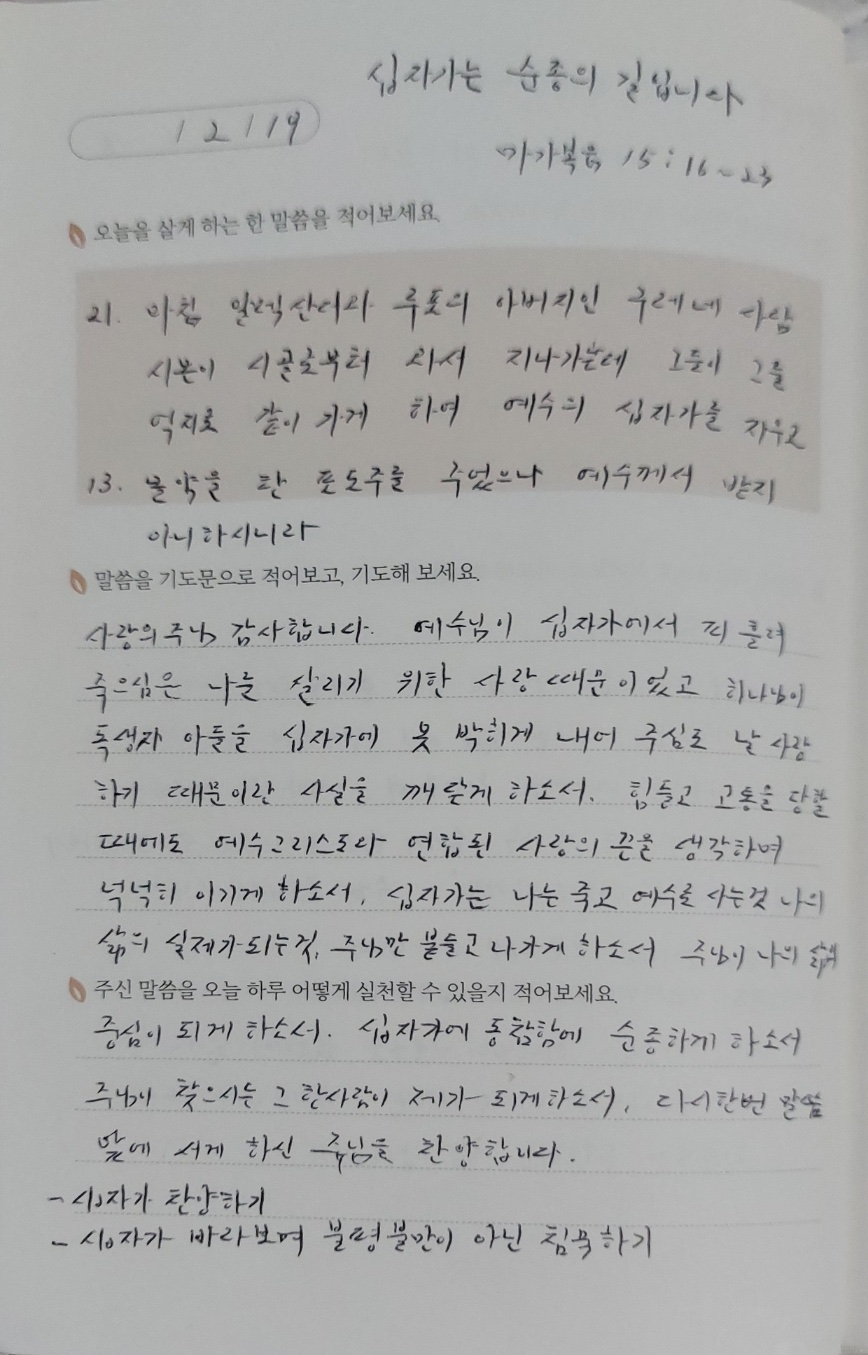 십자가는 순종의 길입니다
12/19
마가복음 15:16~23
오늘을 살게 하는 한 말씀을 적어보세요.
21. 마침 알렉산더와 루포의 아버지인 구레네 사람
시몬이 시골로부터 와서 지나가는데 그들이 그를
억지로 같이 가게 하여 예수의 십자가를 지우고
13. 몰약을 탄 포도주를 주었으나 예수께서 받지
아니하시니라
말씀을 기도문으로 적어보고, 기도해 보세요.
사랑의 주님 감사합니다. 예수님이 십자가에서 피 흘려
죽으심은 나를 살리기 위한 사랑 때문이었고 하나님이
독생자 아들을 십자가에 못 박히게 내어 주심도 날 사랑
하기 때문이란 사실을 깨닫게 하소서. 힘들고 고통을 당할
때에도 예수그리스도와 연합된 사랑의 끈을 생각하며
넉넉히 이기게 하소서. 십자가는 나는 죽고 예수로 사는것 나의
삶의 실제가 되는것, 주님만 붙들고 나가게 하소서 주님이 나의 삶의
주신 말씀을 오늘 하루 어떻게 실천할 수 있을지 적어보세요.
중심이 되게 하소서. 십자가에 동참함에 순종하게 하소서
주님이 찾으시는 그 한사람이 제가 되게하소서. 다시한번 말씀
앞에 서게 하신 주님을 찬양합니다.
- 십자가 찬양하기
- 십자가 바라보며 불평불만이 아닌 침묵하기